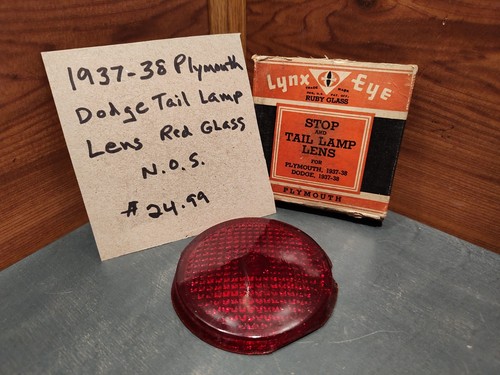 1937-38 Plymouth
Dodge Tail Lamp
Lens Red Glass
N.O.S.
$24.99
Lynx Eye
RUBY GLASS
STOP
AND
TAIL LAMP
LENS
FOR
PLYMOUTH, 1937-38
DODGE, 1937-38
PLYMOUTH